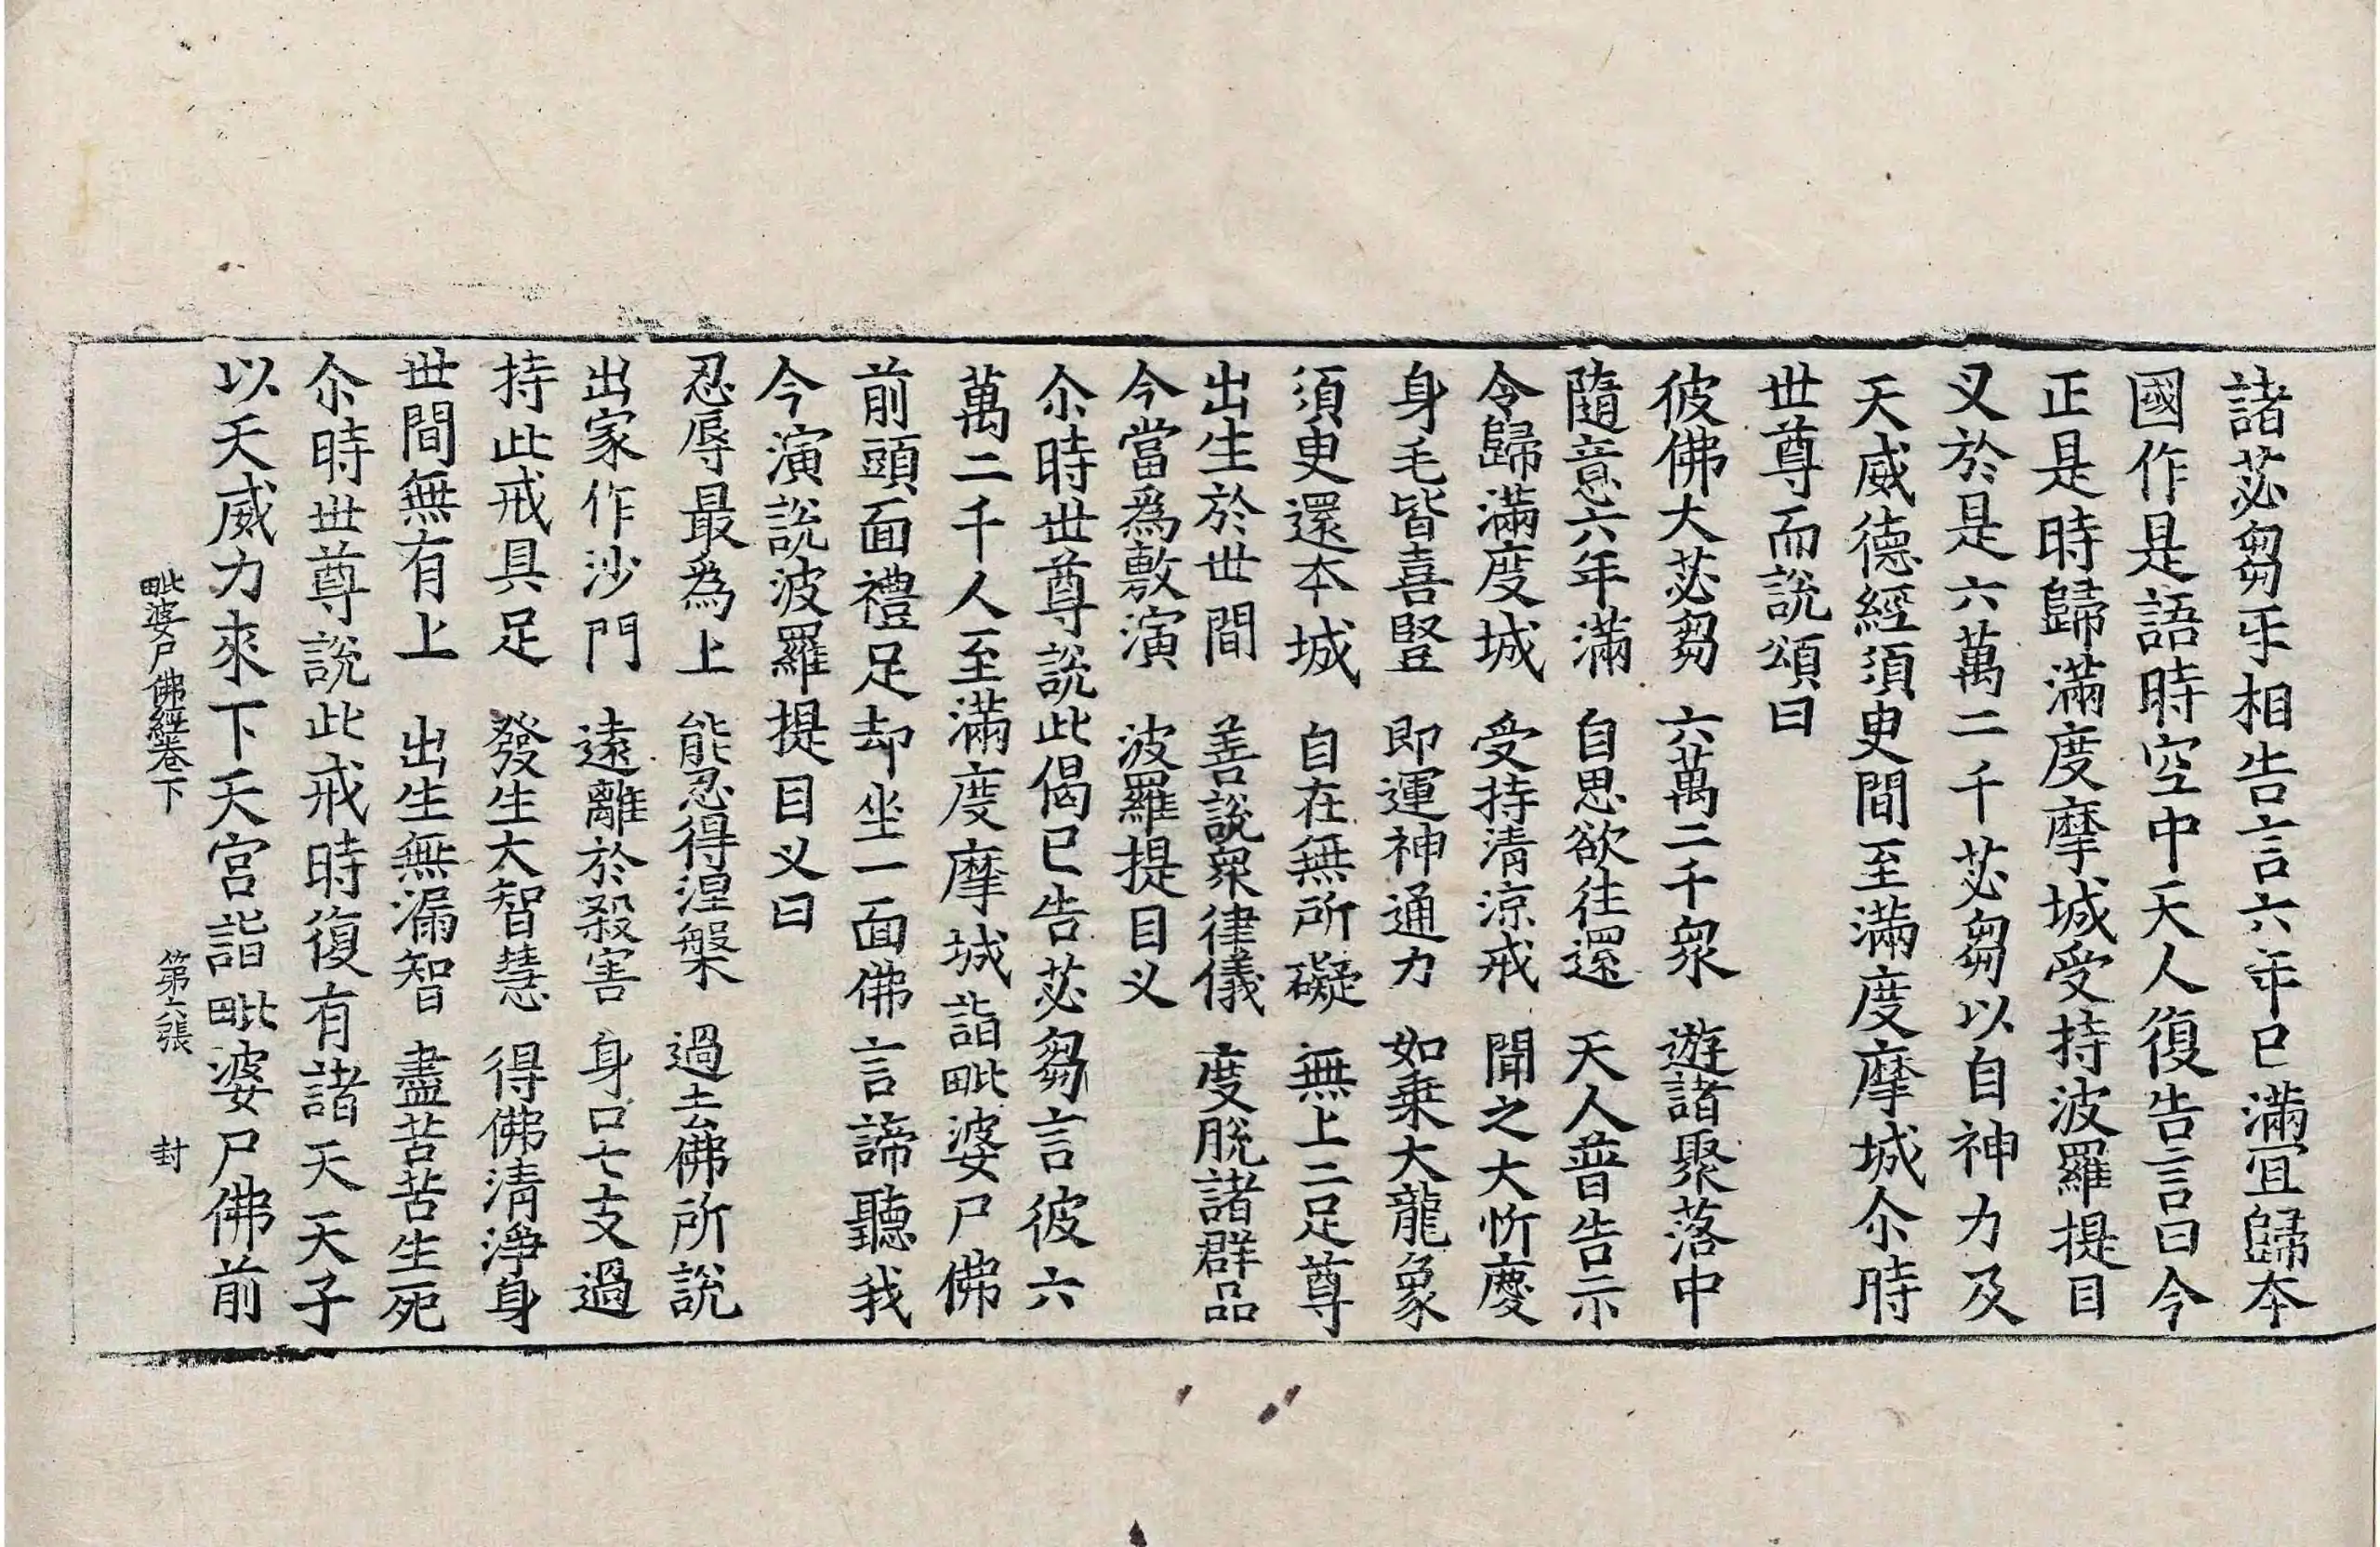 諸苾芻乎相告言六年已滿宜歸本
國作是語時空中天人復告言曰今
正是時歸滿度摩城受持波羅提目
叉於是六萬二千苾芻以自神力及
天威德經須臾間至滿度摩城尒時
世尊而說頌曰
彼佛大苾芻　六萬二千衆　遊諸聚落中
隨意六年滿　自思欲往還　天人普告示
令歸滿度城　受持清涼戒　聞之大忻慶
身毛皆喜豎　即運神通力　如乗大龍象
須臾還本城　自在無所礙　無上二足尊
出生於世間　善說衆律儀　度脫諸群品
今當爲敷演　波羅提目叉
尒時世尊說此偈已告苾芻言彼六
萬二千人至滿度摩城詣毗婆尸佛
前頭面禮足却坐一面佛言諦聽我
今演說波羅提目叉曰
忍辱最爲上　能忍得涅槃　過去佛所說
出家作沙門　遠離於殺害　身口七支過
持此戒具足　發生大智慧　得佛清淨身
世間無有上　出生無漏智　盡苦苦生死
尒時世尊說此戒時復有諸天天子
以天威力來下天宮詣毗婆尸佛前
毗婆尸佛經卷下　第六張　封